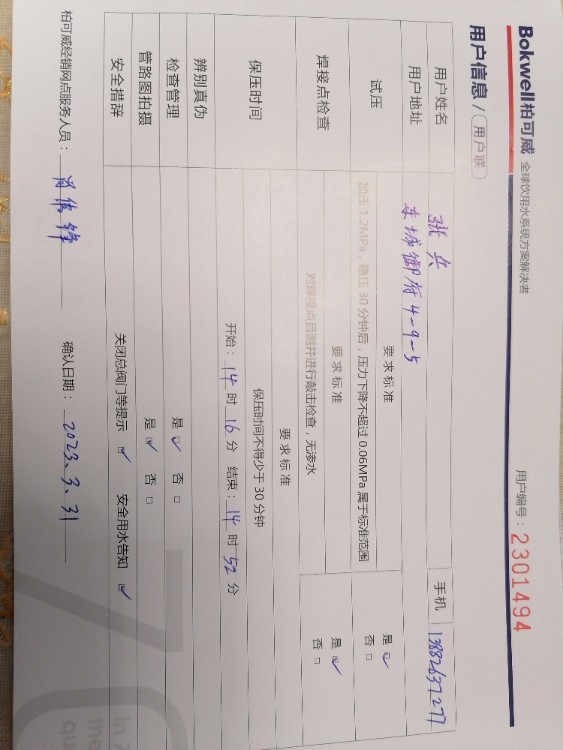 Bokwell柏可威 全球饮用水系统方案解决者
用户编号：2301494
用户信息 / 用户联
用户姓名 张兵 手机 13882637277
用户地址 东城御府4-9-5
试压 要求标准 是 ☑
加压1.2MPa，稳压30分钟后，压力下降不超过0.06MPa属于标准范围 否 □
焊接点检查 要求标准 是 ☑
对焊接点目测并进行敲击检查，无渗水 否 □
保压时间 要求标准
保压时间不得少于30分钟
开始：14时16分 结束：14时52分
辨别真伪
检查管理 是 ☑ 否 □
管路图拍摄 是 ☑ 否 □
安全措辞 关闭总阀门等提示 ☑ 安全用水告知 ☑
柏可威经销网点服务人员： 确认日期：2023.3.31
In
the
qu